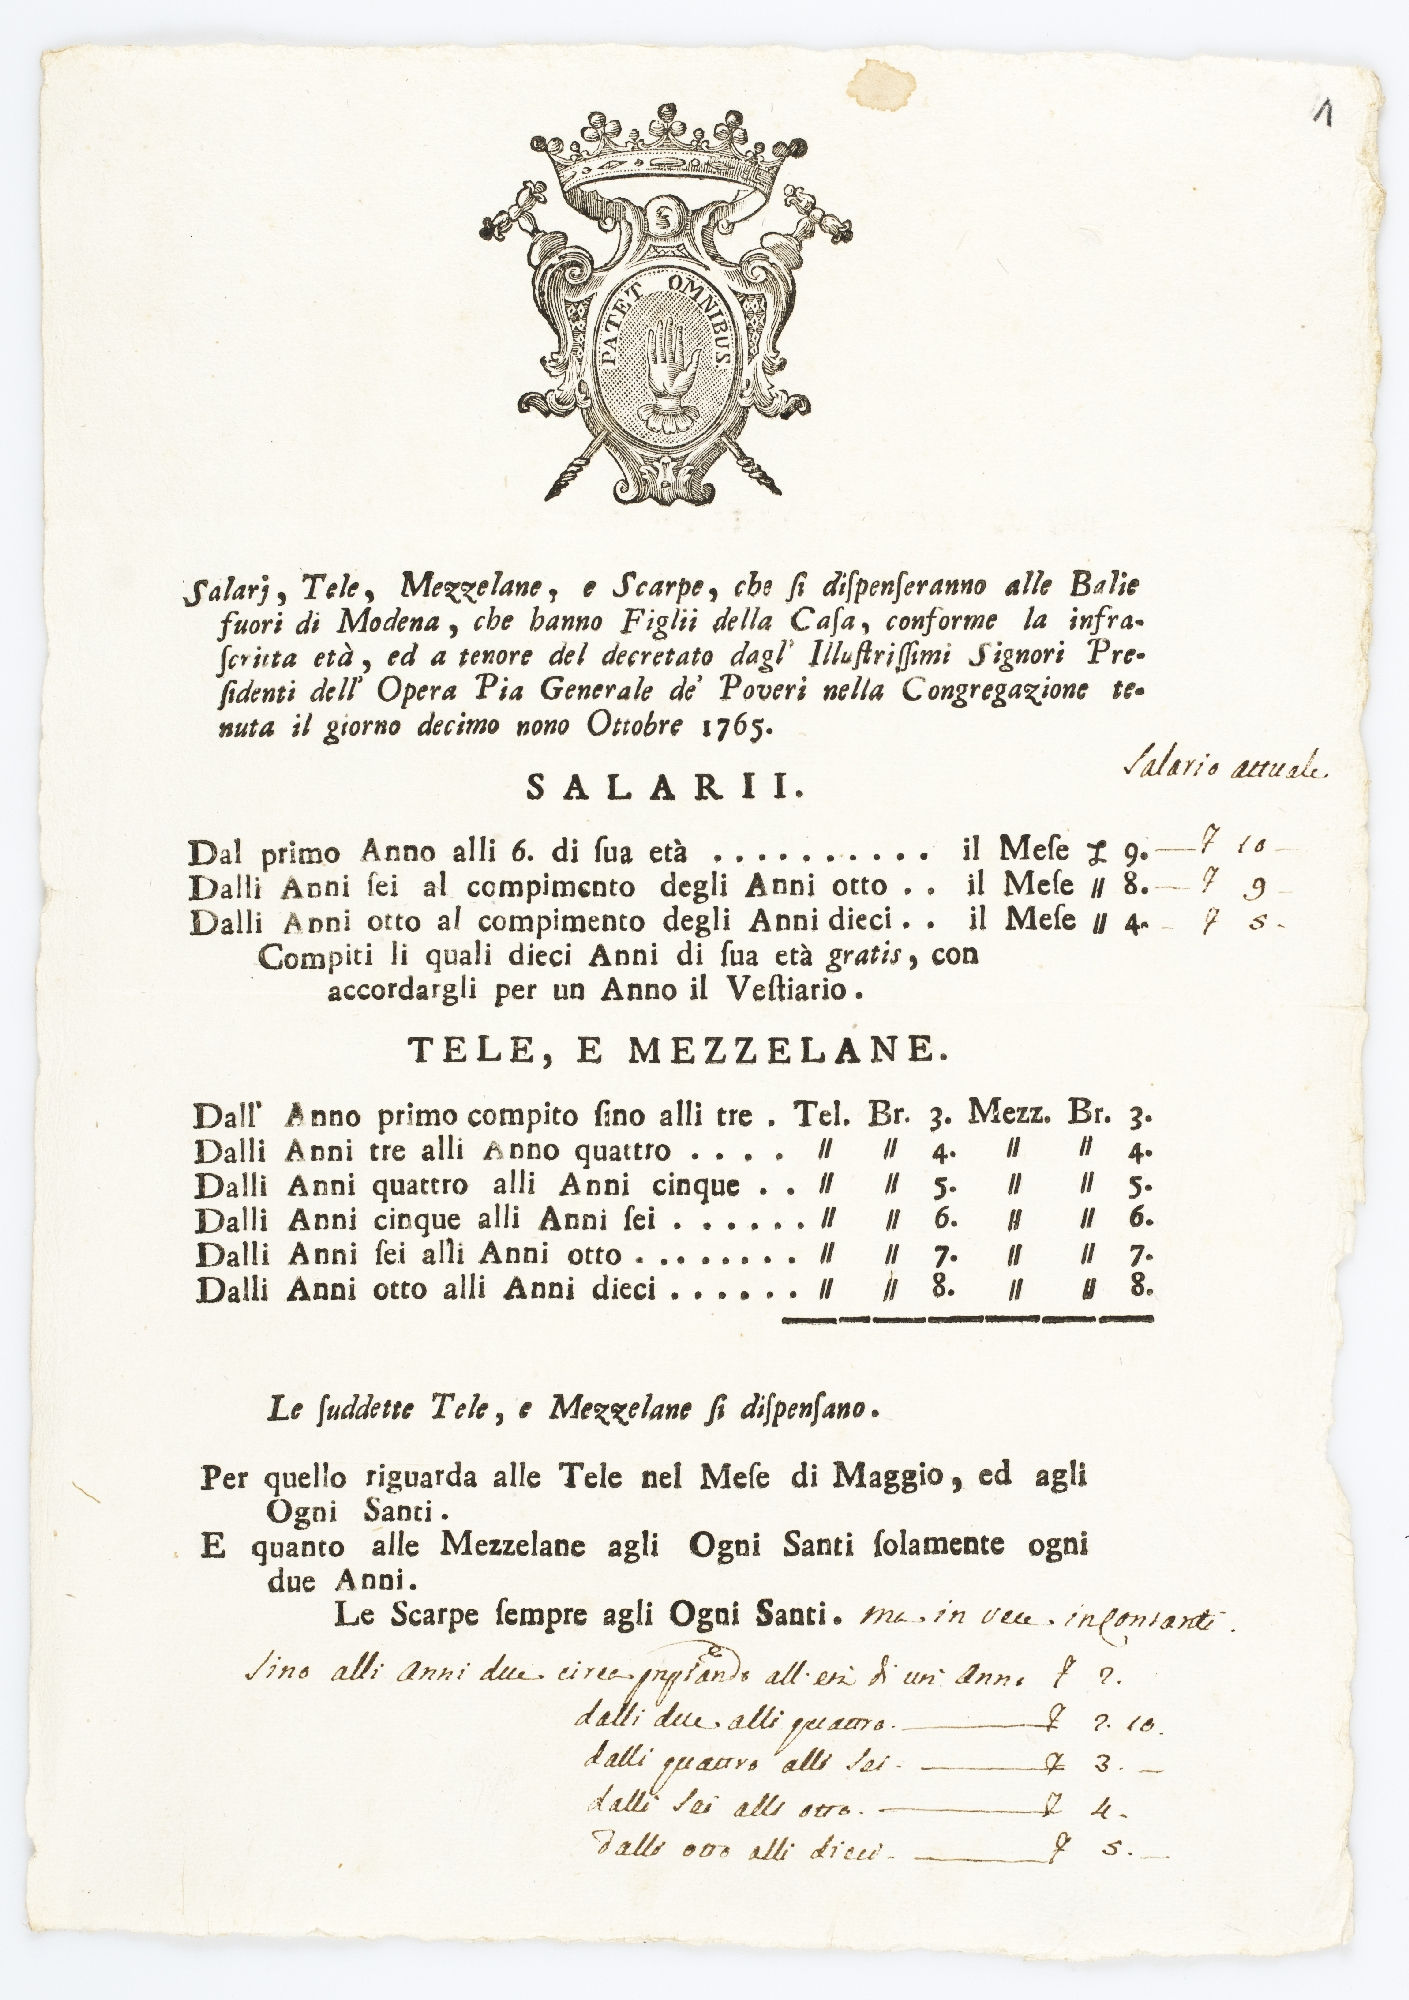 1
PATET OMNIBUS.
Salarj, Tele, Mezzelane, e Scarpe, che ſi diſpenſeranno alle Balie
fuori di Modena, che hanno Figlii della Caſa, conforme la infra-
ſcritta età, ed a tenore del decretato dagl' Illuſtriſſimi Signori Pre-
ſidenti dell' Opera Pia Generale de' Poveri nella Congregazione te-
nuta il giorno decimo nono Ottobre 1765.
Salario attuale.
SALARII.
Dal primo Anno alli 6. di ſua età . . . . . . . . . . il Meſe £ 9. — £ 10 —
Dalli Anni ſei al compimento degli Anni otto . . il Meſe " 8. — £ 9 —
Dalli Anni otto al compimento degli Anni dieci . . il Meſe " 4. — £ 5 -
Compiti li quali dieci Anni di ſua età gratis, con
accordargli per un Anno il Veſtiario.
TELE, E MEZZELANE.
Dall' Anno primo compito ſino alli tre . Tel. Br. 3. Mezz. Br. 3.
Dalli Anni tre alli Anno quattro . . . . " " 4. " " 4.
Dalli Anni quattro alli Anni cinque . . " " 5. " " 5.
Dalli Anni cinque alli Anni ſei . . . . . . " " 6. " " 6.
Dalli Anni ſei alli Anni otto . . . . . . . . " " 7. " " 7.
Dalli Anni otto alli Anni dieci . . . . . . " " 8. " " 8.
Le ſuddette Tele, e Mezzelane ſi diſpenſano.
Per quello riguarda alle Tele nel Meſe di Maggio, ed agli
Ogni Santi.
E quanto alle Mezzelane agli Ogni Santi ſolamente ogni
due Anni.
Le Scarpe ſempre agli Ogni Santi. ma in vece in Contanti.
Sino alli Anni due circa all' età di un' Anno £ 2.
dalli due alli quattro. — £ 2. 10.
dalli quattro alli Sei. — £ 3. —
dalli Sei alli otto. — £ 4.
dalli otto alli dieci. — £ 5. —